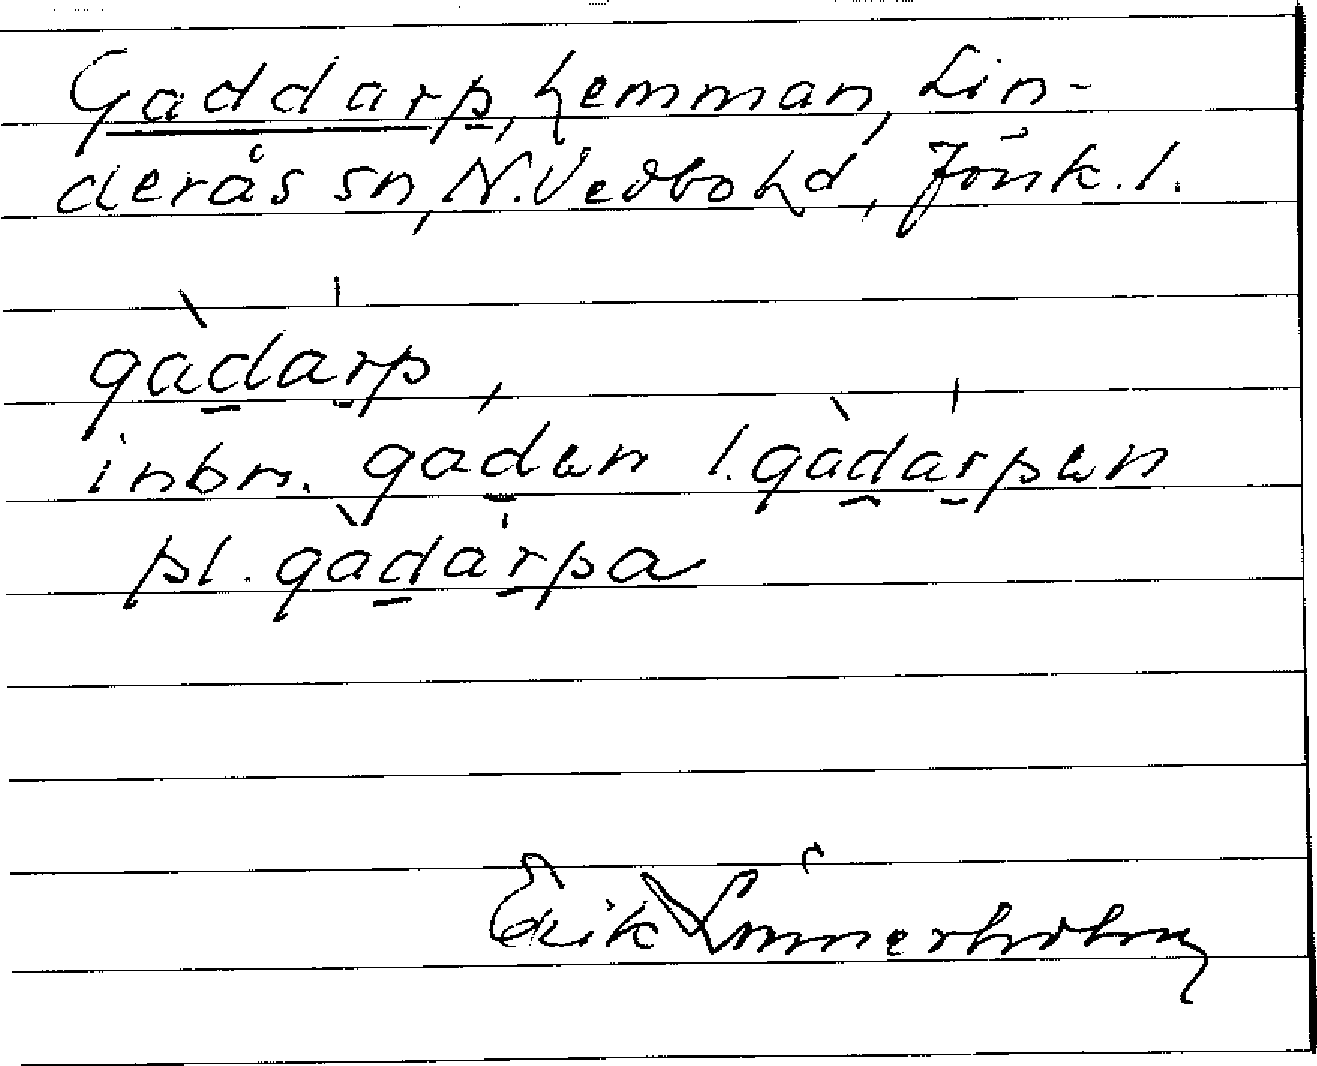 Gaddarp, hemman, Lin-
derås sn, N. Vedbo hd, Jönk. l.
gàdarp,
inbn. gaden l. gàdarpen
pl. gàdarpa
Erik